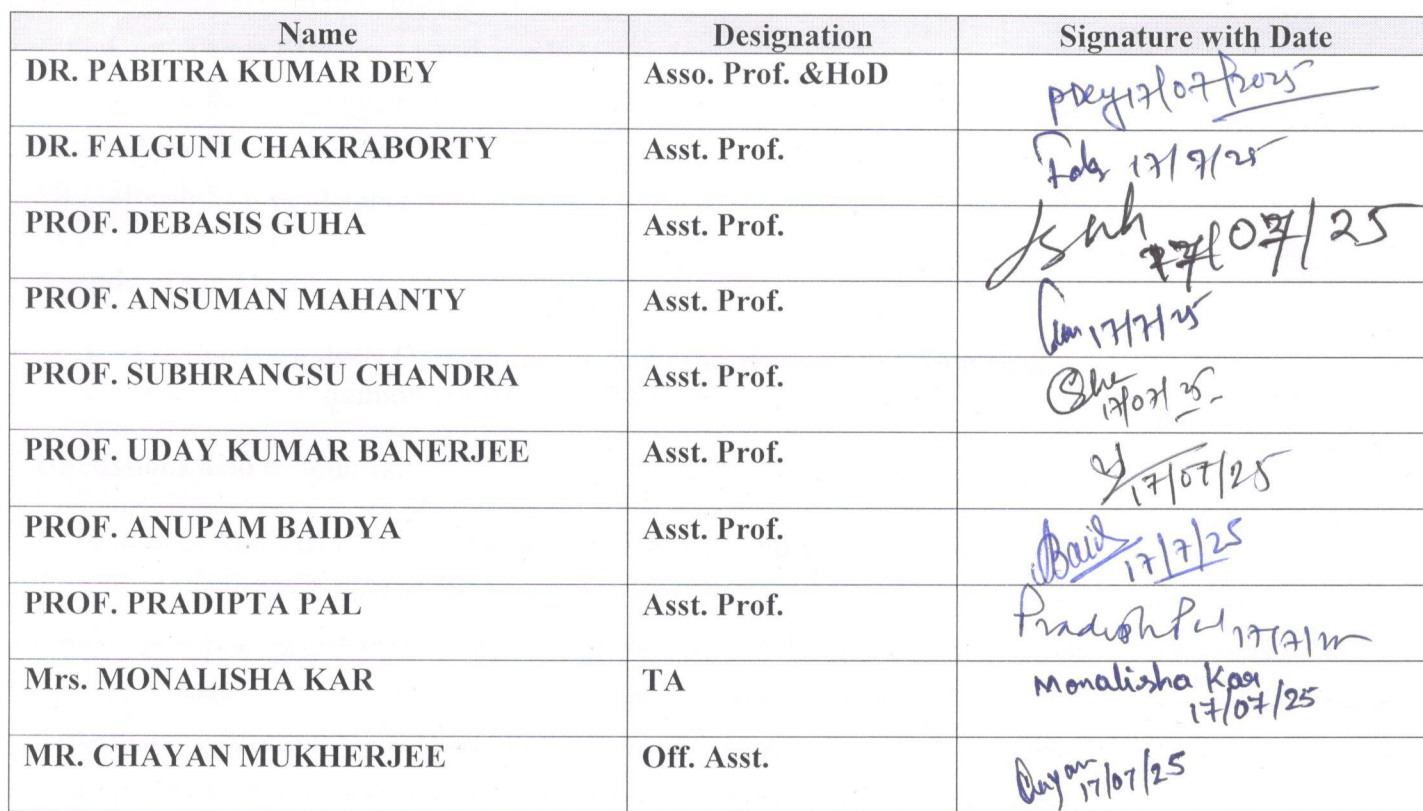 Name Designation Signature with Date
DR. PABITRA KUMAR DEY Asso. Prof. &HoD PDey 17/07/2025
DR. FALGUNI CHAKRABORTY Asst. Prof. 17/7/25
PROF. DEBASIS GUHA Asst. Prof. 17/07/25
PROF. ANSUMAN MAHANTY Asst. Prof. 17/7/25
PROF. SUBHRANGSU CHANDRA Asst. Prof. 17/07/25
PROF. UDAY KUMAR BANERJEE Asst. Prof. 17/07/25
PROF. ANUPAM BAIDYA Asst. Prof. 17/7/25
PROF. PRADIPTA PAL Asst. Prof. Pradipta Pal 17/7/25
Mrs. MONALISHA KAR TA Monalisha Kar
17/07/25
MR. CHAYAN MUKHERJEE Off. Asst. Chayan 17/07/25